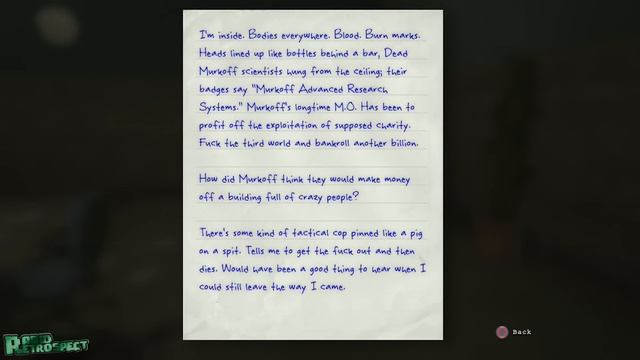 I'm inside. Bodies everywhere. Blood. Burn marks.
Heads lined up like bottles behind a bar, Dead
Murkoff scientists hung from the ceiling; their
badges say "Murkoff Advanced Research
Systems." Murkoff's longtime M.O. Has been to
profit off the exploitation of supposed charity.
Fuck the third world and bankroll another billion.
How did Murkoff think they would make money
off a building full of crazy people?
There's some kind of tactical cop pinned like a pig
on a spit. Tells me to get the fuck out and then
dies. Would have been a good thing to hear when I
could still leave the way I came.
Back
RETROSPECT